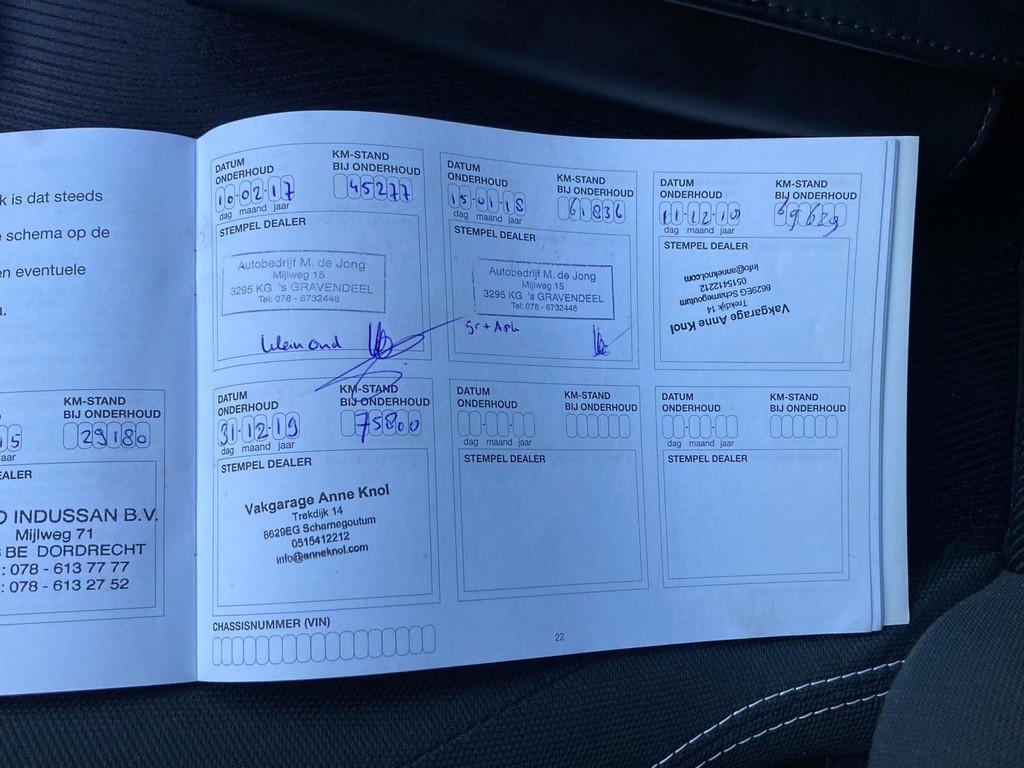 k is dat steeds
schema op de
en eventuele
KM-STAND
BIJ ONDERHOUD
15
29180
aar
EALER
D INDUSSAN B.V.
Mijlweg 71
BE DORDRECHT
: 078 - 613 77 77
: 078 - 613 27 52
DATUM
ONDERHOUD
KM-STAND
BIJ ONDERHOUD
10-02-17
45277
dag maand jaar
STEMPEL DEALER
Autobedrijf M. de Jong
Mijlweg 15
3295 KG 's GRAVENDEEL
Tel: 078 - 6732446
klein ond
DATUM
ONDERHOUD
KM-STAND
BIJ ONDERHOUD
15-01-18
61836
dag maand jaar
STEMPEL DEALER
Autobedrijf M. de Jong
Mijlweg 15
3295 KG 's GRAVENDEEL
Tel: 078 - 6732446
gr + Apk
DATUM
ONDERHOUD
KM-STAND
BIJ ONDERHOUD
11-12-18
69629
dag maand jaar
STEMPEL DEALER
Vakgarage Anne Knol
Trekdijk 14
8629EG Scharnegoutum
0515412212
info@anneknol.com
DATUM
ONDERHOUD
KM-STAND
BIJ ONDERHOUD
31-12-19
75800
dag maand jaar
STEMPEL DEALER
Vakgarage Anne Knol
Trekdijk 14
8629EG Scharnegoutum
0515412212
info@anneknol.com
DATUM
ONDERHOUD
KM-STAND
BIJ ONDERHOUD
dag maand jaar
STEMPEL DEALER
DATUM
ONDERHOUD
KM-STAND
BIJ ONDERHOUD
dag maand jaar
STEMPEL DEALER
CHASSISNUMMER (VIN)
22